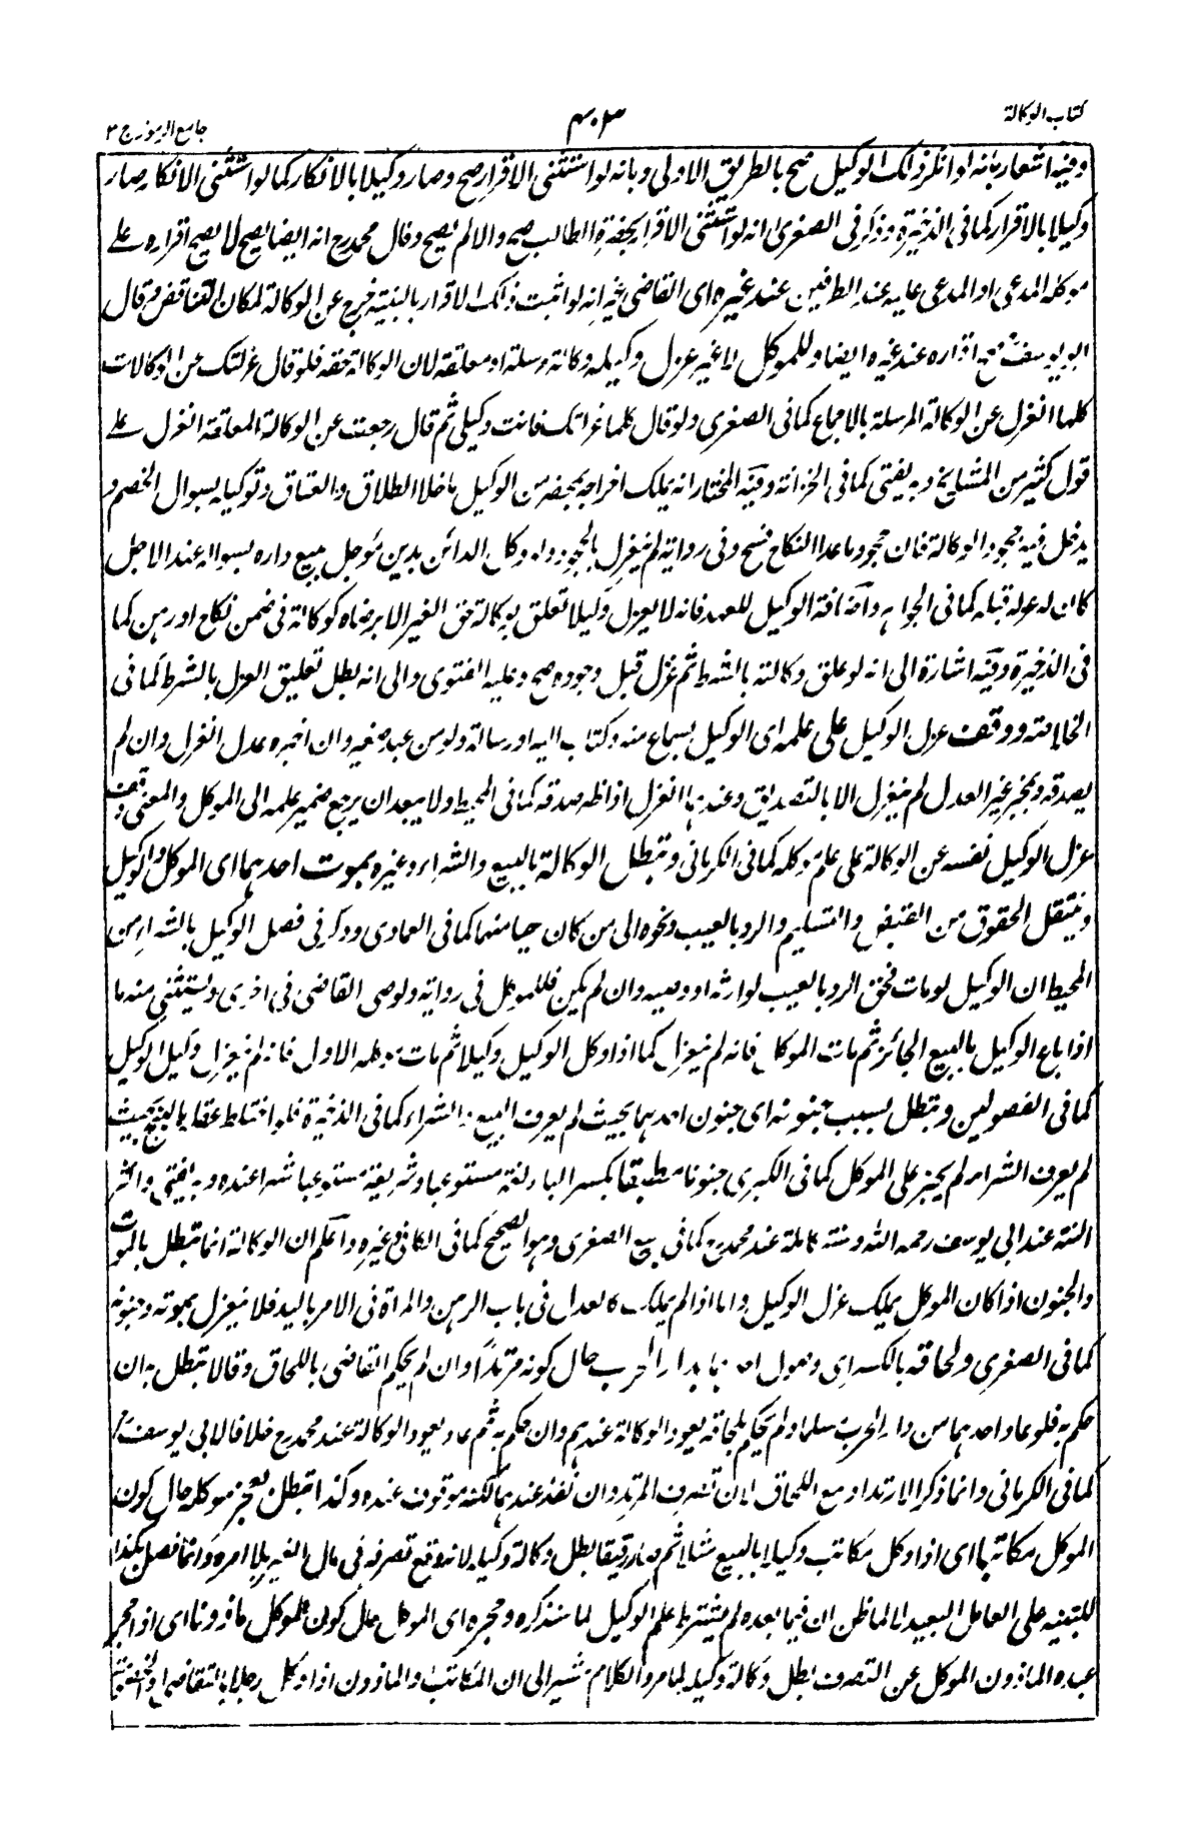 كتاب الوكالة
٤٠٣
جامع الرموز ج ٣
وفيه اشعار بانه لو انكر ذلك الوكيل صح بالطريق الاولى وبانه لو استثنى الاقرار صح وصار وكيلا بالانكار كما لو استثنى الانكار صار
وكيلا بالاقرار كما فى الذخيرة وذكر فى الصغرى انه لو استثنى الاقرار بحضرة الطالب صح والا لم يصح وقال محمد رح انه ايضا يصح لا يصح اقراره على
موكله المدعى او المدعى عليه عند الطرفين عند غيره اى القاضى غير انه لو اثبت ذلك الاقرار بالبينة خرج عن الوكالة لمكان التناقض وقال
ابو يوسف صح اقراره عند غيره ايضا وللموكل لا غير عزل وكيله وكالة مرسلة او معلقة لان الوكالة حقه فلو قال عزلتك عن الوكالات
كلها انعزل عن الوكالة المرسلة بالاجماع كما فى الصغرى ولو قال كلما عزلتك فانت وكيلى ثم قال رجعت عن الوكالة المعلقة انعزل على
قول كثير من المشايخ وبه يفتى كما فى الخزانة وفيه المختار انه يملك اخراجه بمحضر من الوكيل ما خلا الطلاق والعتاق وتوكيله بسوال الخصم و
يدخل فيه جحود الوكالة فان جحود ما عدا النكاح فسخ وفى رواية لم ينعزل بالجحود ولو وكل الدائن بدين مؤجل ببيع داره بسواله عند الاجل
كان له عزله قبله كما فى الجواهر واضافة الوكيل للعهد فانه لا يعزل وكيلا تعلق بوكالته حق الغير الا برضاه كوكالة فى ضمن نكاح او رهن كما
فى الذخيرة وفيه اشارة الى انه لو علق وكالته بالشرط ثم عزل قبل وجوده صح وعليه الفتوى والى انه بطل تعليق العزل بالشرط كما فى
الخانية ووقف عزل الوكيل على علمه اى الوكيل بسماع منه وكتاب اليه او رسالة ولو من عبد صغير وان اخبره عدل انعزل وان لم
يصدقه وبخبر غير العدل لم ينعزل الا بالتصديق وعندهما انعزل اذا ظهر صدقه كما فى المحيط ولا يبعد ان يرجع ضمير علمه الى الموكل والمعنى وقف
عزل الوكيل نفسه عن الوكالة على علم موكله كما فى الكرمانى وتبطل الوكالة بالبيع والشراء وغيره بموت احدهما اى الموكل والوكيل
وينتقل الحقوق من القبض والتسليم والرد بالعيب ونحوه الى من كان حيا منهما كما فى العمادى وذكر فى فصل الوكيل بالشراء من
المحيط ان الوكيل لو مات فحق الرد بالعيب لوارثه او وصيه وان لم يكن فللموكل فى رواية ولوصى القاضى فى اخرى ويستثنى منه ما
اذا باع الوكيل بالبيع الجائز ثم مات الموكل فانه لم ينعزل كما اذا وكل الوكيل وكيلا ثم مات موكله الاول فانه لم ينعزل وكيل الوكيل
كما فى الفصولين وتبطل بسبب جنونه اى جنون احدهما بحيث لم يعرف البيع والشراء كما فى الذخيرة فلو اختلط عقله بالبنج بحيث
لم يعرف الشراء لم يجز على الموكل كما فى الكبرى جنونا مطبقا بكسر الباء لغة مستوعبا وشريعة مستوعبا شهرا عنده وبه يفتى واكثر
السنة عند ابى يوسف رحمه الله وسنة كاملة عند محمد رح كما فى بيع الصغرى وهو الصحيح كما فى الكافى وغيره واعلم ان الوكالة انما تبطل بالموت
والجنون اذا كان الموكل يملك عزل الوكيل واما اذا لم يملك كالعدل فى باب الرهن والمرأة فى الامر باليد فلا ينعزل بموته وجنونه
كما فى الصغرى ولحاقه بالكسر اى وصول احدهما بدار الحرب حال كونه مرتدا وان لم يحكم القاضى باللحاق وقالا تبطل به ان
حكم به فلو عاد احدهما من دار الحرب مسلما ولم يحكم بلحاقه يعود الوكالة عندهم وان حكم به ثم عاد يعود الوكالة عند محمد رح خلافا لابى يوسف رح
كما فى الكرمانى وانما ذكر الارتداد مع اللحاق لان تصرف المرتد وان نفذ عندهما لكنه موقوف عنده وكذا تبطل بعجز موكله حال كون
الموكل مكاتبا اى اذا وكل مكاتب وكيلا بالبيع مثلا ثم صار رقيقا بطل وكالة وكيله لانه وقع تصرفه فى مال الغير بلا امره وانما فصل بكذا
للتنبيه على العامل البعيد لا لما ظن ان فيما بعده لم يشترط علم الوكيل لما سنذكره وحجره اى الموكل حال كون الموكل ماذونا اى اذا حجر
عبده الماذون الموكل عن التصرف بطل وكالة وكيله لما مر والكلام مشير الى ان المكاتب والماذون اذا وكل رجلا بالتقاضى او الخصومة